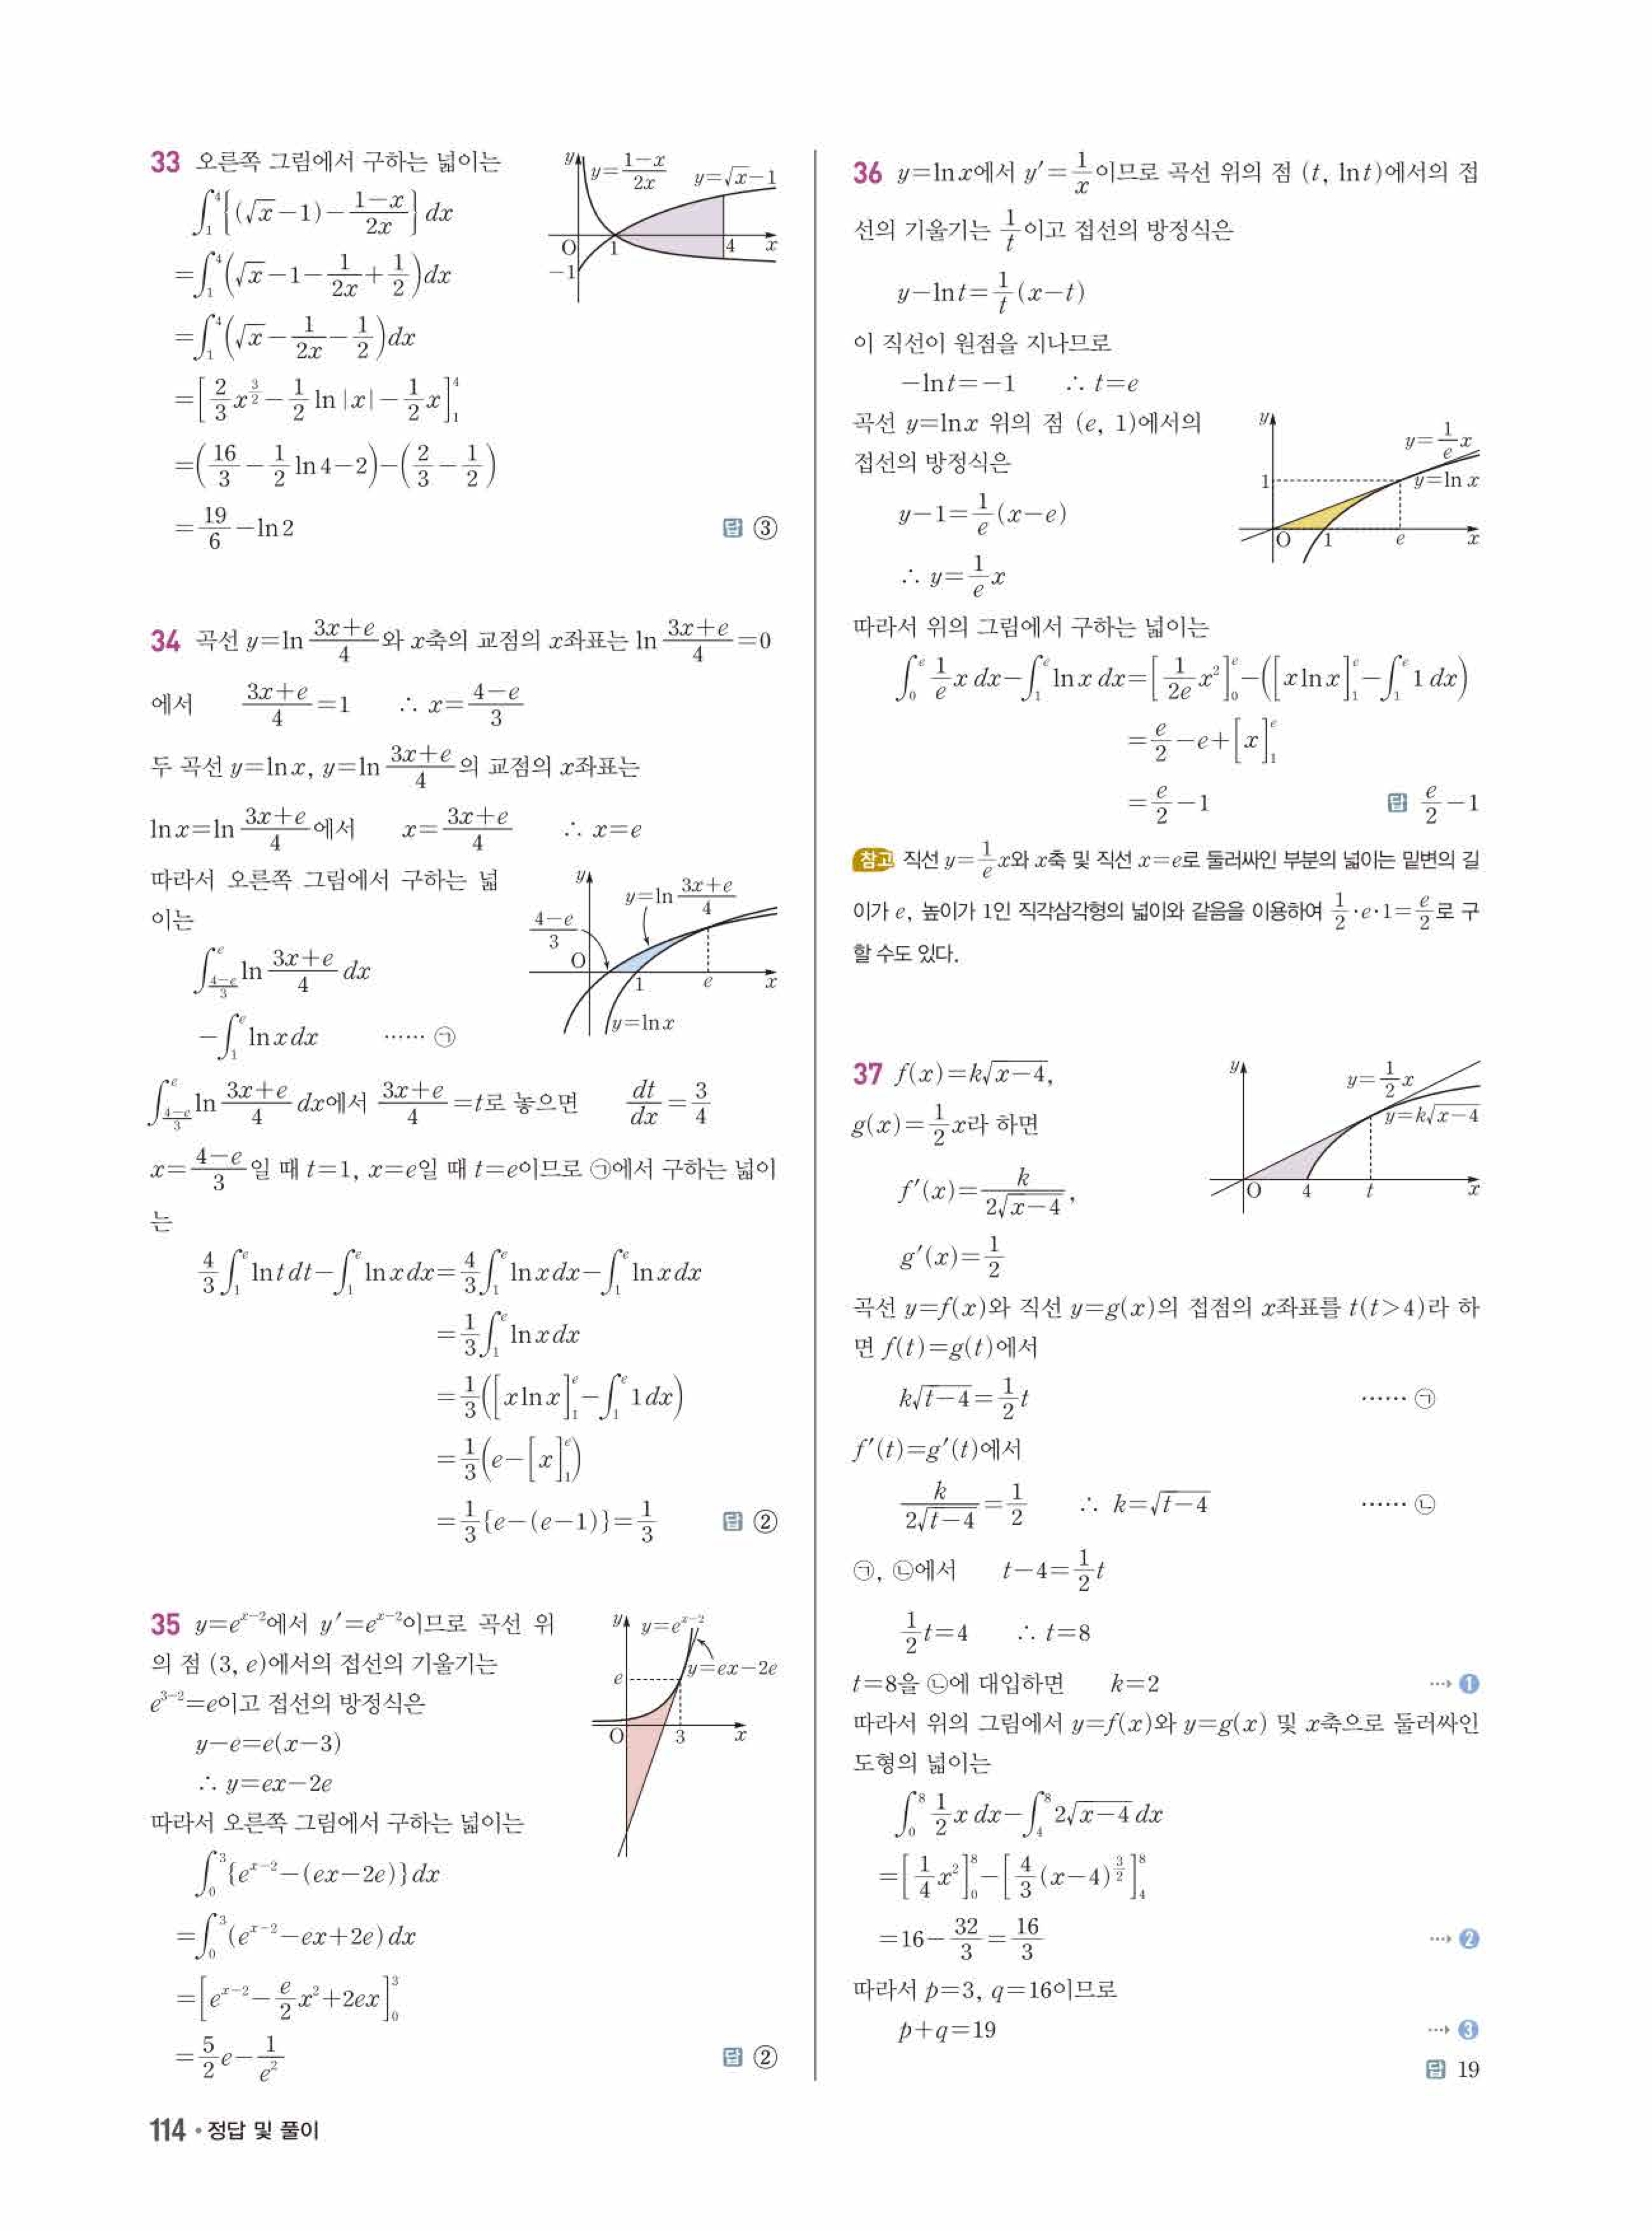 33 오른쪽 그림에서 구하는 넓이는
∫₁⁴{(√x−1)−(1−x)/(2x)}dx
=∫₁⁴(√x−1−1/(2x)+1/2)dx
=∫₁⁴(√x−1/(2x)−1/2)dx
=[2/3 x^(3/2)−1/2 ln|x|−1/2 x]₁⁴
=(16/3−1/2 ln4−2)−(2/3−1/2)
=19/6−ln2 답 ③
y y=(1−x)/(2x) y=√x−1
O 1 4 x
−1
34 곡선 y=ln (3x+e)/4와 x축의 교점의 x좌표는 ln (3x+e)/4=0
에서 (3x+e)/4=1 ∴ x=(4−e)/3
두 곡선 y=lnx, y=ln (3x+e)/4의 교점의 x좌표는
lnx=ln (3x+e)/4에서 x=(3x+e)/4 ∴ x=e
따라서 오른쪽 그림에서 구하는 넓
이는
∫_((4−e)/3)^e ln (3x+e)/4 dx
−∫₁^e lnxdx …… ㉠
y y=ln (3x+e)/4
(4−e)/3
O 1 e x
y=lnx
∫_((4−e)/3)^e ln (3x+e)/4 dx에서 (3x+e)/4=t로 놓으면 dt/dx=3/4
x=(4−e)/3일 때 t=1, x=e일 때 t=e이므로 ㉠에서 구하는 넓이
는
4/3∫₁^e lntdt−∫₁^e lnxdx=4/3∫₁^e lnxdx−∫₁^e lnxdx
=1/3∫₁^e lnxdx
=1/3([xlnx]₁^e−∫₁^e 1dx)
=1/3(e−[x]₁^e)
=1/3{e−(e−1)}=1/3 답 ②
35 y=e^(x−2)에서 y′=e^(x−2)이므로 곡선 위
의 점 (3, e)에서의 접선의 기울기는
e^(3−2)=e이고 접선의 방정식은
y−e=e(x−3)
∴ y=ex−2e
따라서 오른쪽 그림에서 구하는 넓이는
∫₀³{e^(x−2)−(ex−2e)}dx
=∫₀³(e^(x−2)−ex+2e)dx
=[e^(x−2)−e/2 x²+2ex]₀³
=5/2 e−1/e² 답 ②
y y=e^(x−2)
e y=ex−2e
O 3 x
114 • 정답 및 풀이
36 y=lnx에서 y′=1/x이므로 곡선 위의 점 (t, lnt)에서의 접
선의 기울기는 1/t이고 접선의 방정식은
y−lnt=1/t(x−t)
이 직선이 원점을 지나므로
−lnt=−1 ∴ t=e
곡선 y=lnx 위의 점 (e, 1)에서의
접선의 방정식은
y−1=1/e(x−e)
∴ y=1/e x
y y=1/e x
1 y=ln x
O 1 e x
따라서 위의 그림에서 구하는 넓이는
∫₀^e 1/e x dx−∫₁^e lnx dx=[1/(2e) x²]₀^e−([xlnx]₁^e−∫₁^e 1dx)
=e/2−e+[x]₁^e
=e/2−1 답 e/2−1
참고 직선 y=1/e x와 x축 및 직선 x=e로 둘러싸인 부분의 넓이는 밑변의 길
이가 e, 높이가 1인 직각삼각형의 넓이와 같음을 이용하여 1/2·e·1=e/2로 구
할 수도 있다.
37 f(x)=k√(x−4),
g(x)=1/2 x라 하면
f′(x)=k/(2√(x−4)),
g′(x)=1/2
y y=1/2 x
y=k√(x−4)
O 4 t x
곡선 y=f(x)와 직선 y=g(x)의 접점의 x좌표를 t(t>4)라 하
면 f(t)=g(t)에서
k√(t−4)=1/2 t …… ㉠
f′(t)=g′(t)에서
k/(2√(t−4))=1/2 ∴ k=√(t−4) …… ㉡
㉠, ㉡에서 t−4=1/2 t
1/2 t=4 ∴ t=8
t=8을 ㉡에 대입하면 k=2 ⋯→ ❶
따라서 위의 그림에서 y=f(x)와 y=g(x) 및 x축으로 둘러싸인
도형의 넓이는
∫₀⁸ 1/2 x dx−∫₄⁸ 2√(x−4) dx
=[1/4 x²]₀⁸−[4/3 (x−4)^(3/2)]₄⁸
=16−32/3=16/3 ⋯→ ❷
따라서 p=3, q=16이므로
p+q=19 ⋯→ ❸
답 19